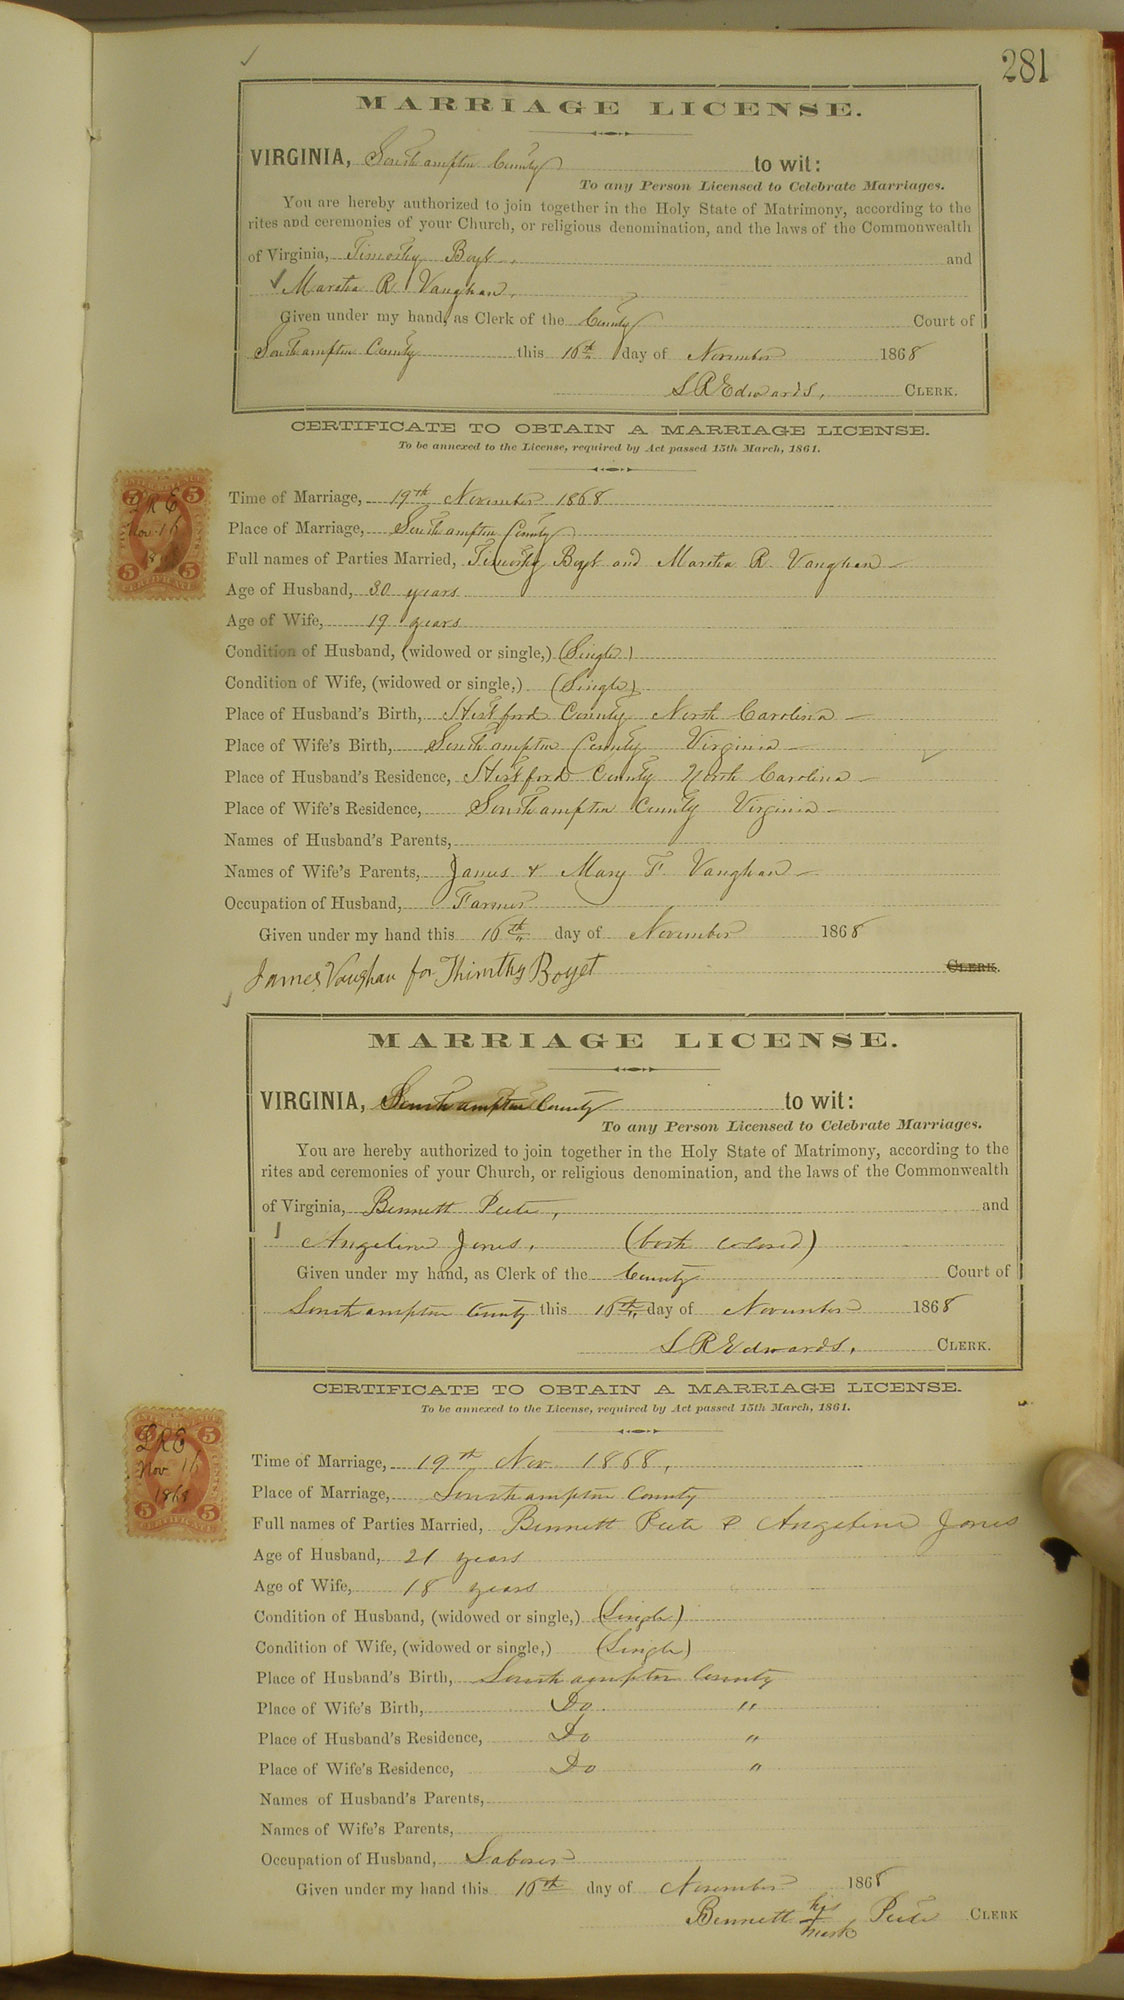 281
MARRIAGE LICENSE.
VIRGINIA, Southampton County to wit:
To any Person Licensed to Celebrate Marriages.
You are hereby authorized to join together in the Holy State of Matrimony, according to the
rites and ceremonies of your Church, or religious denomination, and the laws of the Commonwealth
of Virginia, Timothy Boyt. and
Martha R. Vaughan.
Given under my hand, as Clerk of the County Court of
Southampton County this 16th day of November 1868
L R Edwards, CLERK.
CERTIFICATE TO OBTAIN A MARRIAGE LICENSE.
To be annexed to the License, required by Act passed 15th March, 1861.
5 5
L R E
Nov. 16
1868
5 5
CERTIFICATE
Time of Marriage, 19th November 1868
Place of Marriage, Southampton County
Full names of Parties Married, Timothy Boyt and Martha R. Vaughan
Age of Husband, 30 years
Age of Wife, 19 years
Condition of Husband, (widowed or single,) (Single)
Condition of Wife, (widowed or single,) (Single)
Place of Husband's Birth, Hertford County North Carolina
Place of Wife's Birth, Southampton County Virginia
Place of Husband's Residence, Hertford County North Carolina
Place of Wife's Residence, Southampton County Virginia
Names of Husband's Parents,
Names of Wife's Parents, James & Mary F. Vaughan
Occupation of Husband, Farmer
Given under my hand this 16th day of November 1868
James Vaughan for Thimthy Boyet CLERK.
MARRIAGE LICENSE.
VIRGINIA, Southampton County to wit:
To any Person Licensed to Celebrate Marriages.
You are hereby authorized to join together in the Holy State of Matrimony, according to the
rites and ceremonies of your Church, or religious denomination, and the laws of the Commonwealth
of Virginia, Bennett Peete, and
Angelina Jones. (both colored)
Given under my hand, as Clerk of the County Court of
Southampton County this 16th day of November 1868
L R Edwards, CLERK.
CERTIFICATE TO OBTAIN A MARRIAGE LICENSE.
To be annexed to the License, required by Act passed 15th March, 1861.
5 5
L R E
Nov. 16
1868
5 5
CERTIFICATE
Time of Marriage, 19th Nov 1868,
Place of Marriage, Southampton County
Full names of Parties Married, Bennett Peete & Angelina Jones
Age of Husband, 21 years
Age of Wife, 18 years
Condition of Husband, (widowed or single,) (Single)
Condition of Wife, (widowed or single,) (Single)
Place of Husband's Birth, Southampton County
Place of Wife's Birth, Do "
Place of Husband's Residence, Do "
Place of Wife's Residence, Do "
Names of Husband's Parents,
Names of Wife's Parents,
Occupation of Husband, Laborer
Given under my hand this 16th day of November 1868
Bennett his Peete CLERK
mark